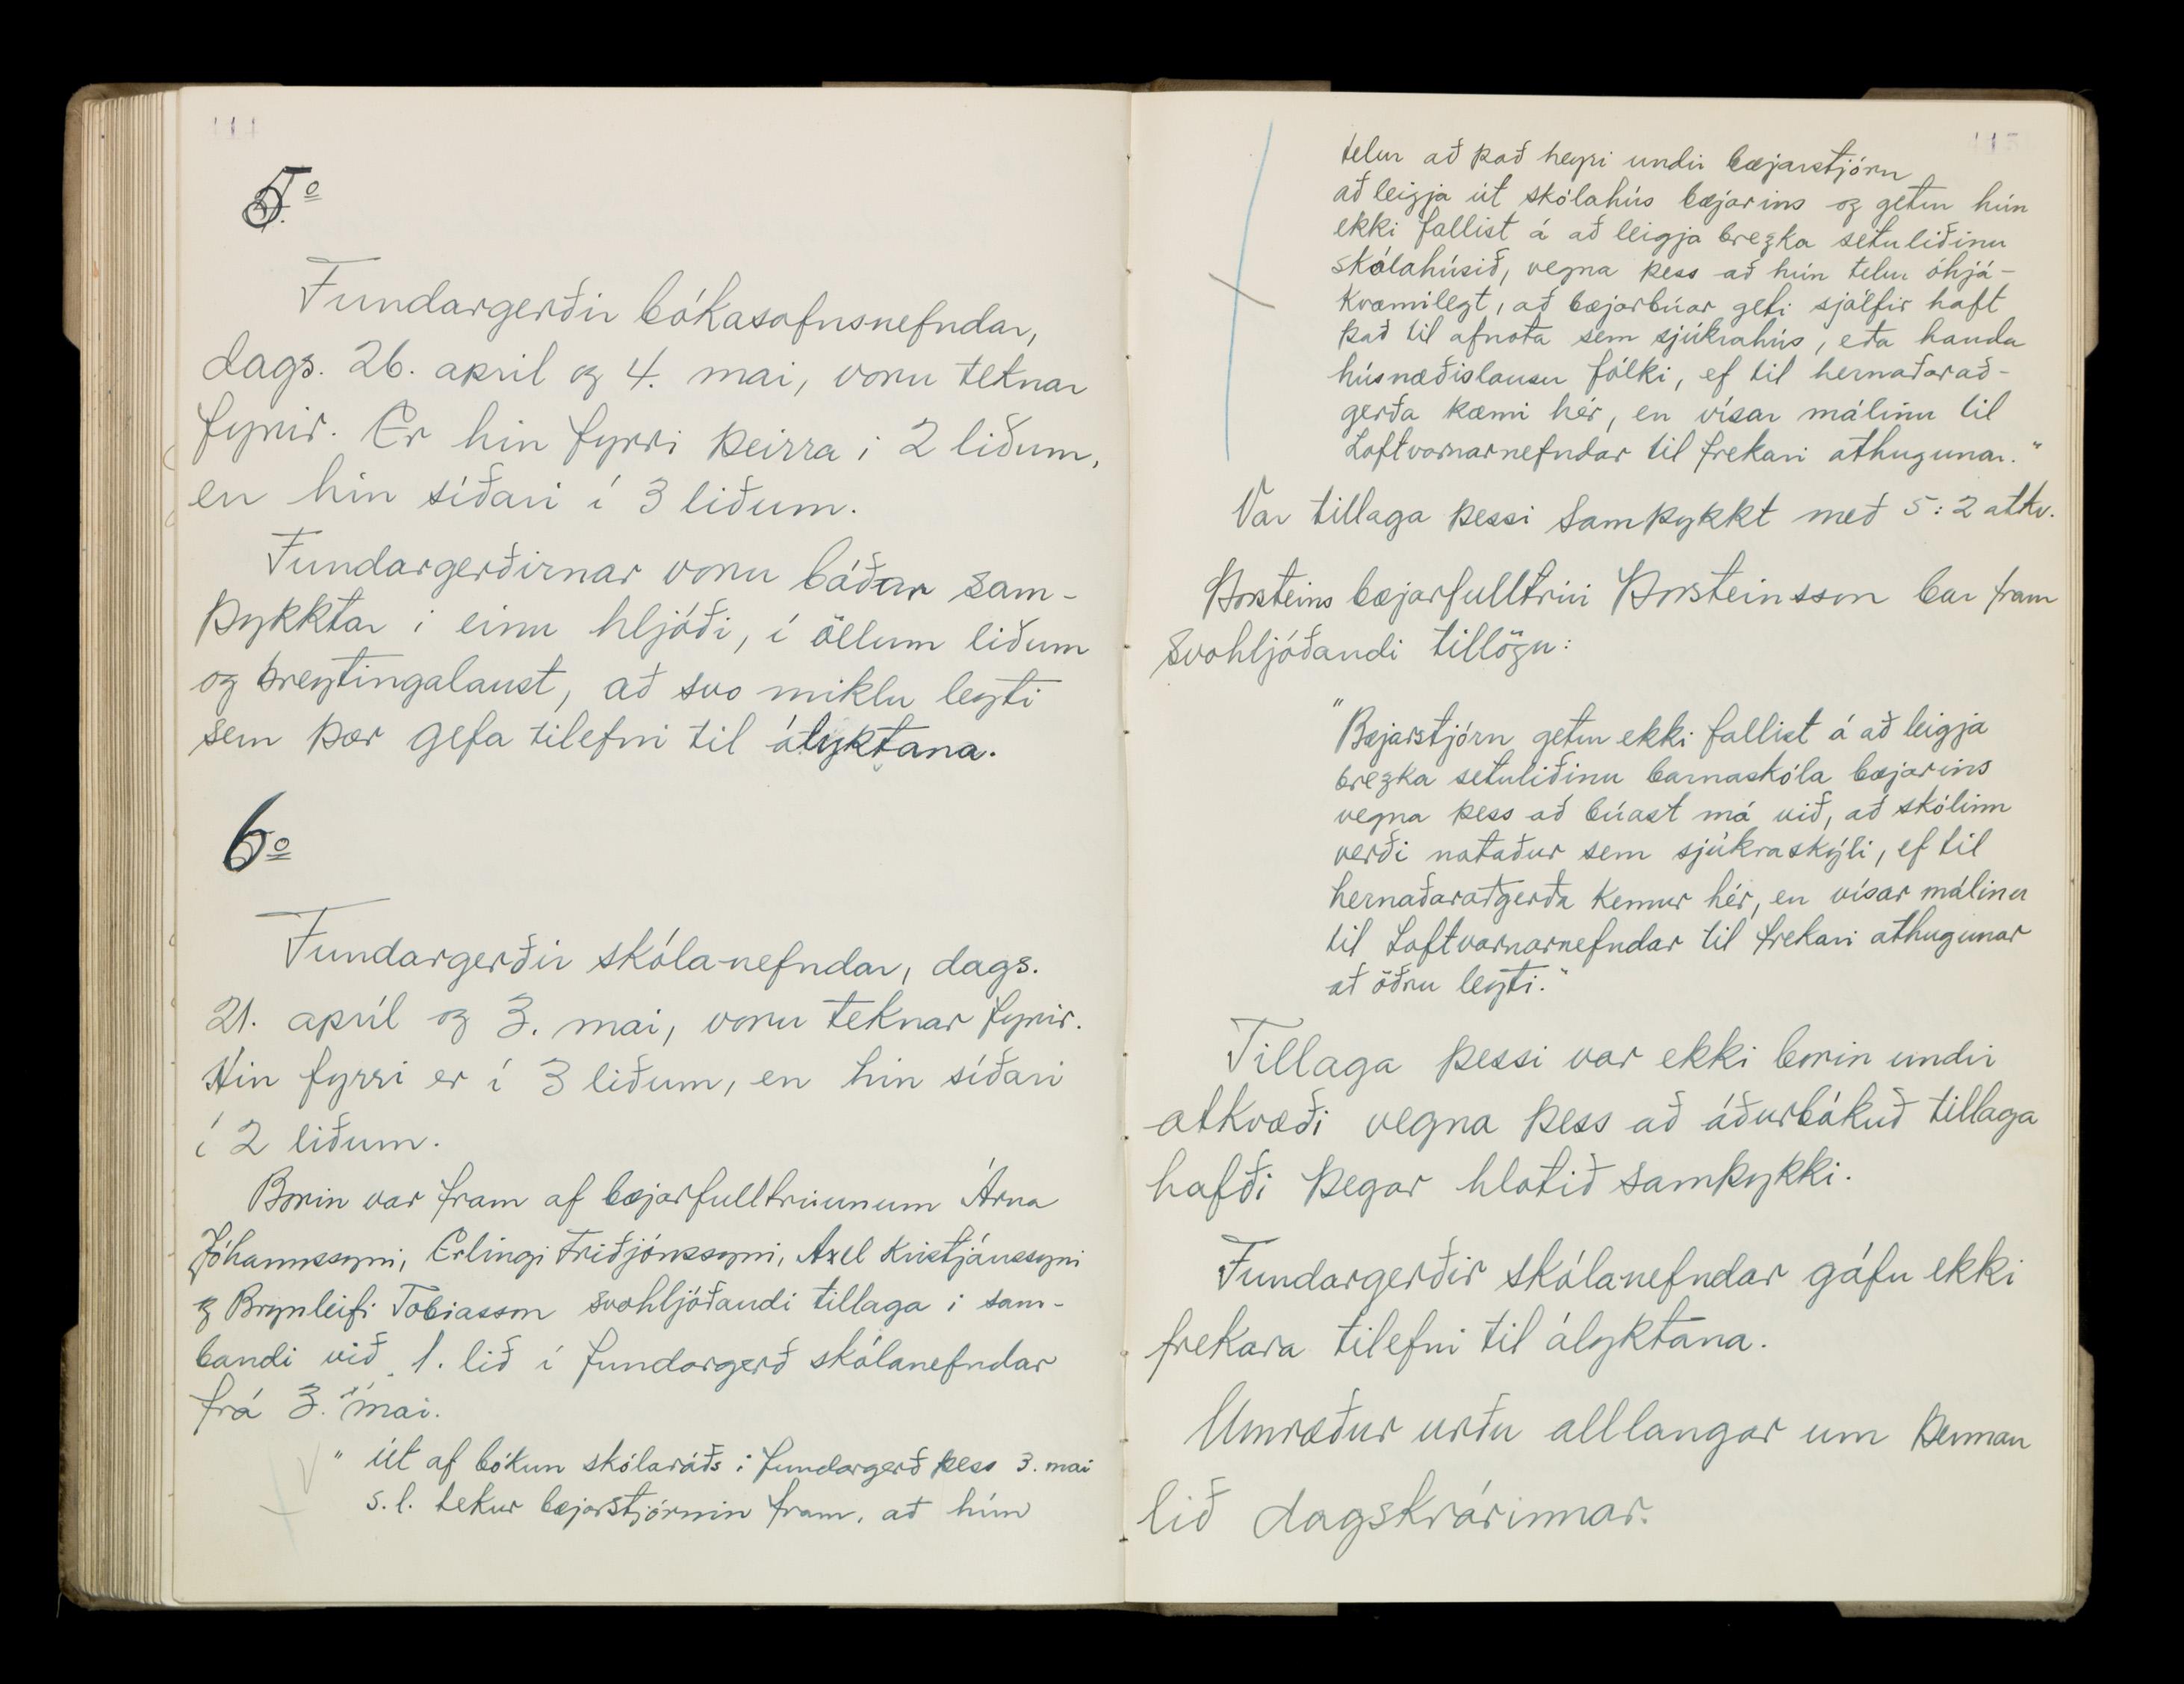 114
5º
Fundargerðir bókasafnsnefndar,
dags. 26. apríl og 4. mai, voru teknar
fyrir. Er hin fyrri þeirra í 2 liðum,
en hin síðari í 3 liðum.
Fundargerðirnar voru báðar sam-
þykktar i einu hljóði, í öllum liðum
og breytingalaust, að svo miklu leyti
sem þær gefa tilefni til ályktana.
6º
Fundargerðir skóla-nefndar, dags.
21. apríl og 3. mai, voru teknar fyrir.
Hin fyrri er í 3 liðum, en hin síðari
í 2 liðum.
Borin var fram af bæjarfulltrúunum Árna
Jóhannssyni, Erlingi Friðjónssyni, Axel Kristjánssyni
og Brynleifi Tobiasson svohljóðandi tillaga i sam-
bandi við 1. lið í fundargerð skólanefndar
frá 3. mai.
" Út af bókun skólaráðs i fundargerð þess 3. mai
s.l. tekur bæjarstjórnin fram, að hún
115
telur að það heyri undir bæjarstjórn
að leigja út skólahús bæjarins og getur hún
ekki fallist á að leigja brezka setuliðinu
skólahúsið, vegna þess að hún telur óhjá-
kvæmilegt, að bæjarbúar geti sjálfir haft
það til afnota sem sjúkrahús, eða handa
húsnæðislausu fólki, ef til hernaðarað-
gerða kæmi hér, en vísar málinu til
Loftvarnarnefndar til frekari athugunar."
Var tillaga þessi samþykkt með 5:2 atkv.
Þorsteins bæjarfulltrúi Þorsteinsson bar fram
svohljóðandi tillögu:
"Bæjarstjórn getur ekki fallist á að leigja
brezka setuliðinu barnaskóla bæjarins
vegna þess að búast má við, að skólinn
verði notaður sem sjúkraskýli, ef til
hernaðaraðgerða kemur hér, en vísar málinu
til Loftvarnarnefndar til frekari athugunar
að öðru leyti."
Tillaga þessi var ekki borin undir
atkvæði vegna þess að áðurbókuð tillaga
hafði þegar hlotið samþykki.
Fundargerðir skólanefndar gáfu ekki
frekara tilefni til ályktana.
Umræður urðu alllangar um þennan
lið dagskrárinnar.